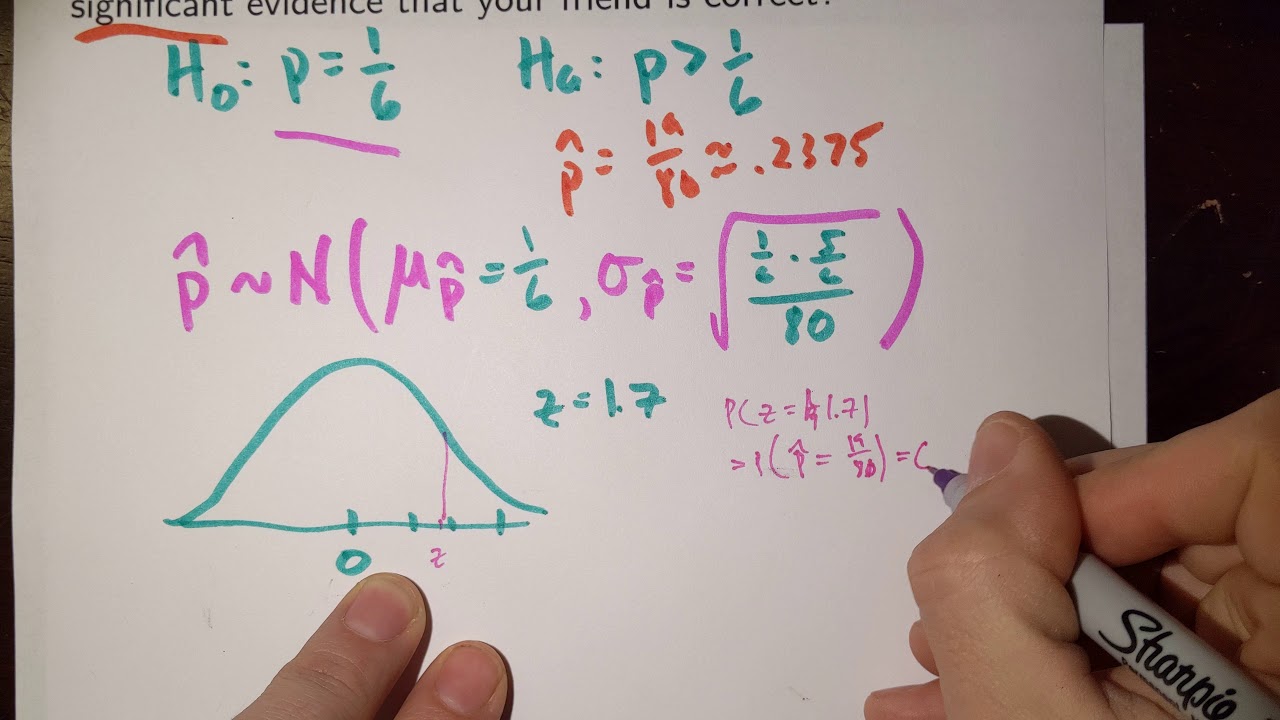 significant evidence that your friend is correct?
H₀: p = 1/6 Hₐ: p > 1/6
p̂ = 19/80 ≈ .2375
p̂ ~ N(μp̂ = 1/6, σp̂ = √(1/6 · 5/6 / 80))
z = 1.7
P(z = 1.7)
= P(p̂ = 19/80) = 0
0
z
Sharpie